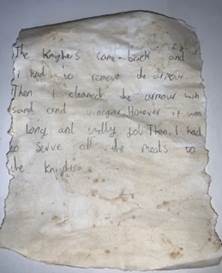 The Knights came back and
i had to remove the armour
Then I cleaned the armour with
sand and vinegar. However it was
a long and smelly job. Then I had
to serve all the meals to
the Knights.